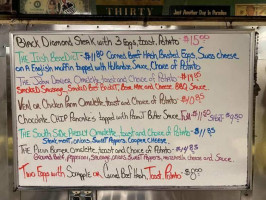 THIRTY
Just Another Day in Paradise
Black Diamond Steak with 3 Eggs, toast, Potato $15.00
The Irish Benedict - $11.95 Corned Beef Hash, Poached Eggs, Swiss cheese
on A English muffin topped with Hollandaise Sauce, Choice of Potato
The John Denver Omelette, toast and Choice of Potato
Smoked Sausage, Smoked Beef Brisket, and BBQ Sauce
Veal or Chicken Parm Omelette, toast and Choice of Potato
Chocolate Chip Pancakes topped with Peanut Butter Sauce Full Short
The South Side Philly Omelette, toast and Choice of Potato - $11.85
Steak meat, onions, Sweet Peppers, Cooper cheese
The Pizza Burger Omelette, toast and Choice of Potato
Ground Beef, Pepperoni, Sausage, onions, Sweet Peppers, cheese and Sauce
Two Eggs with Scrapple or Corned Beef Hash, Toast, Potato